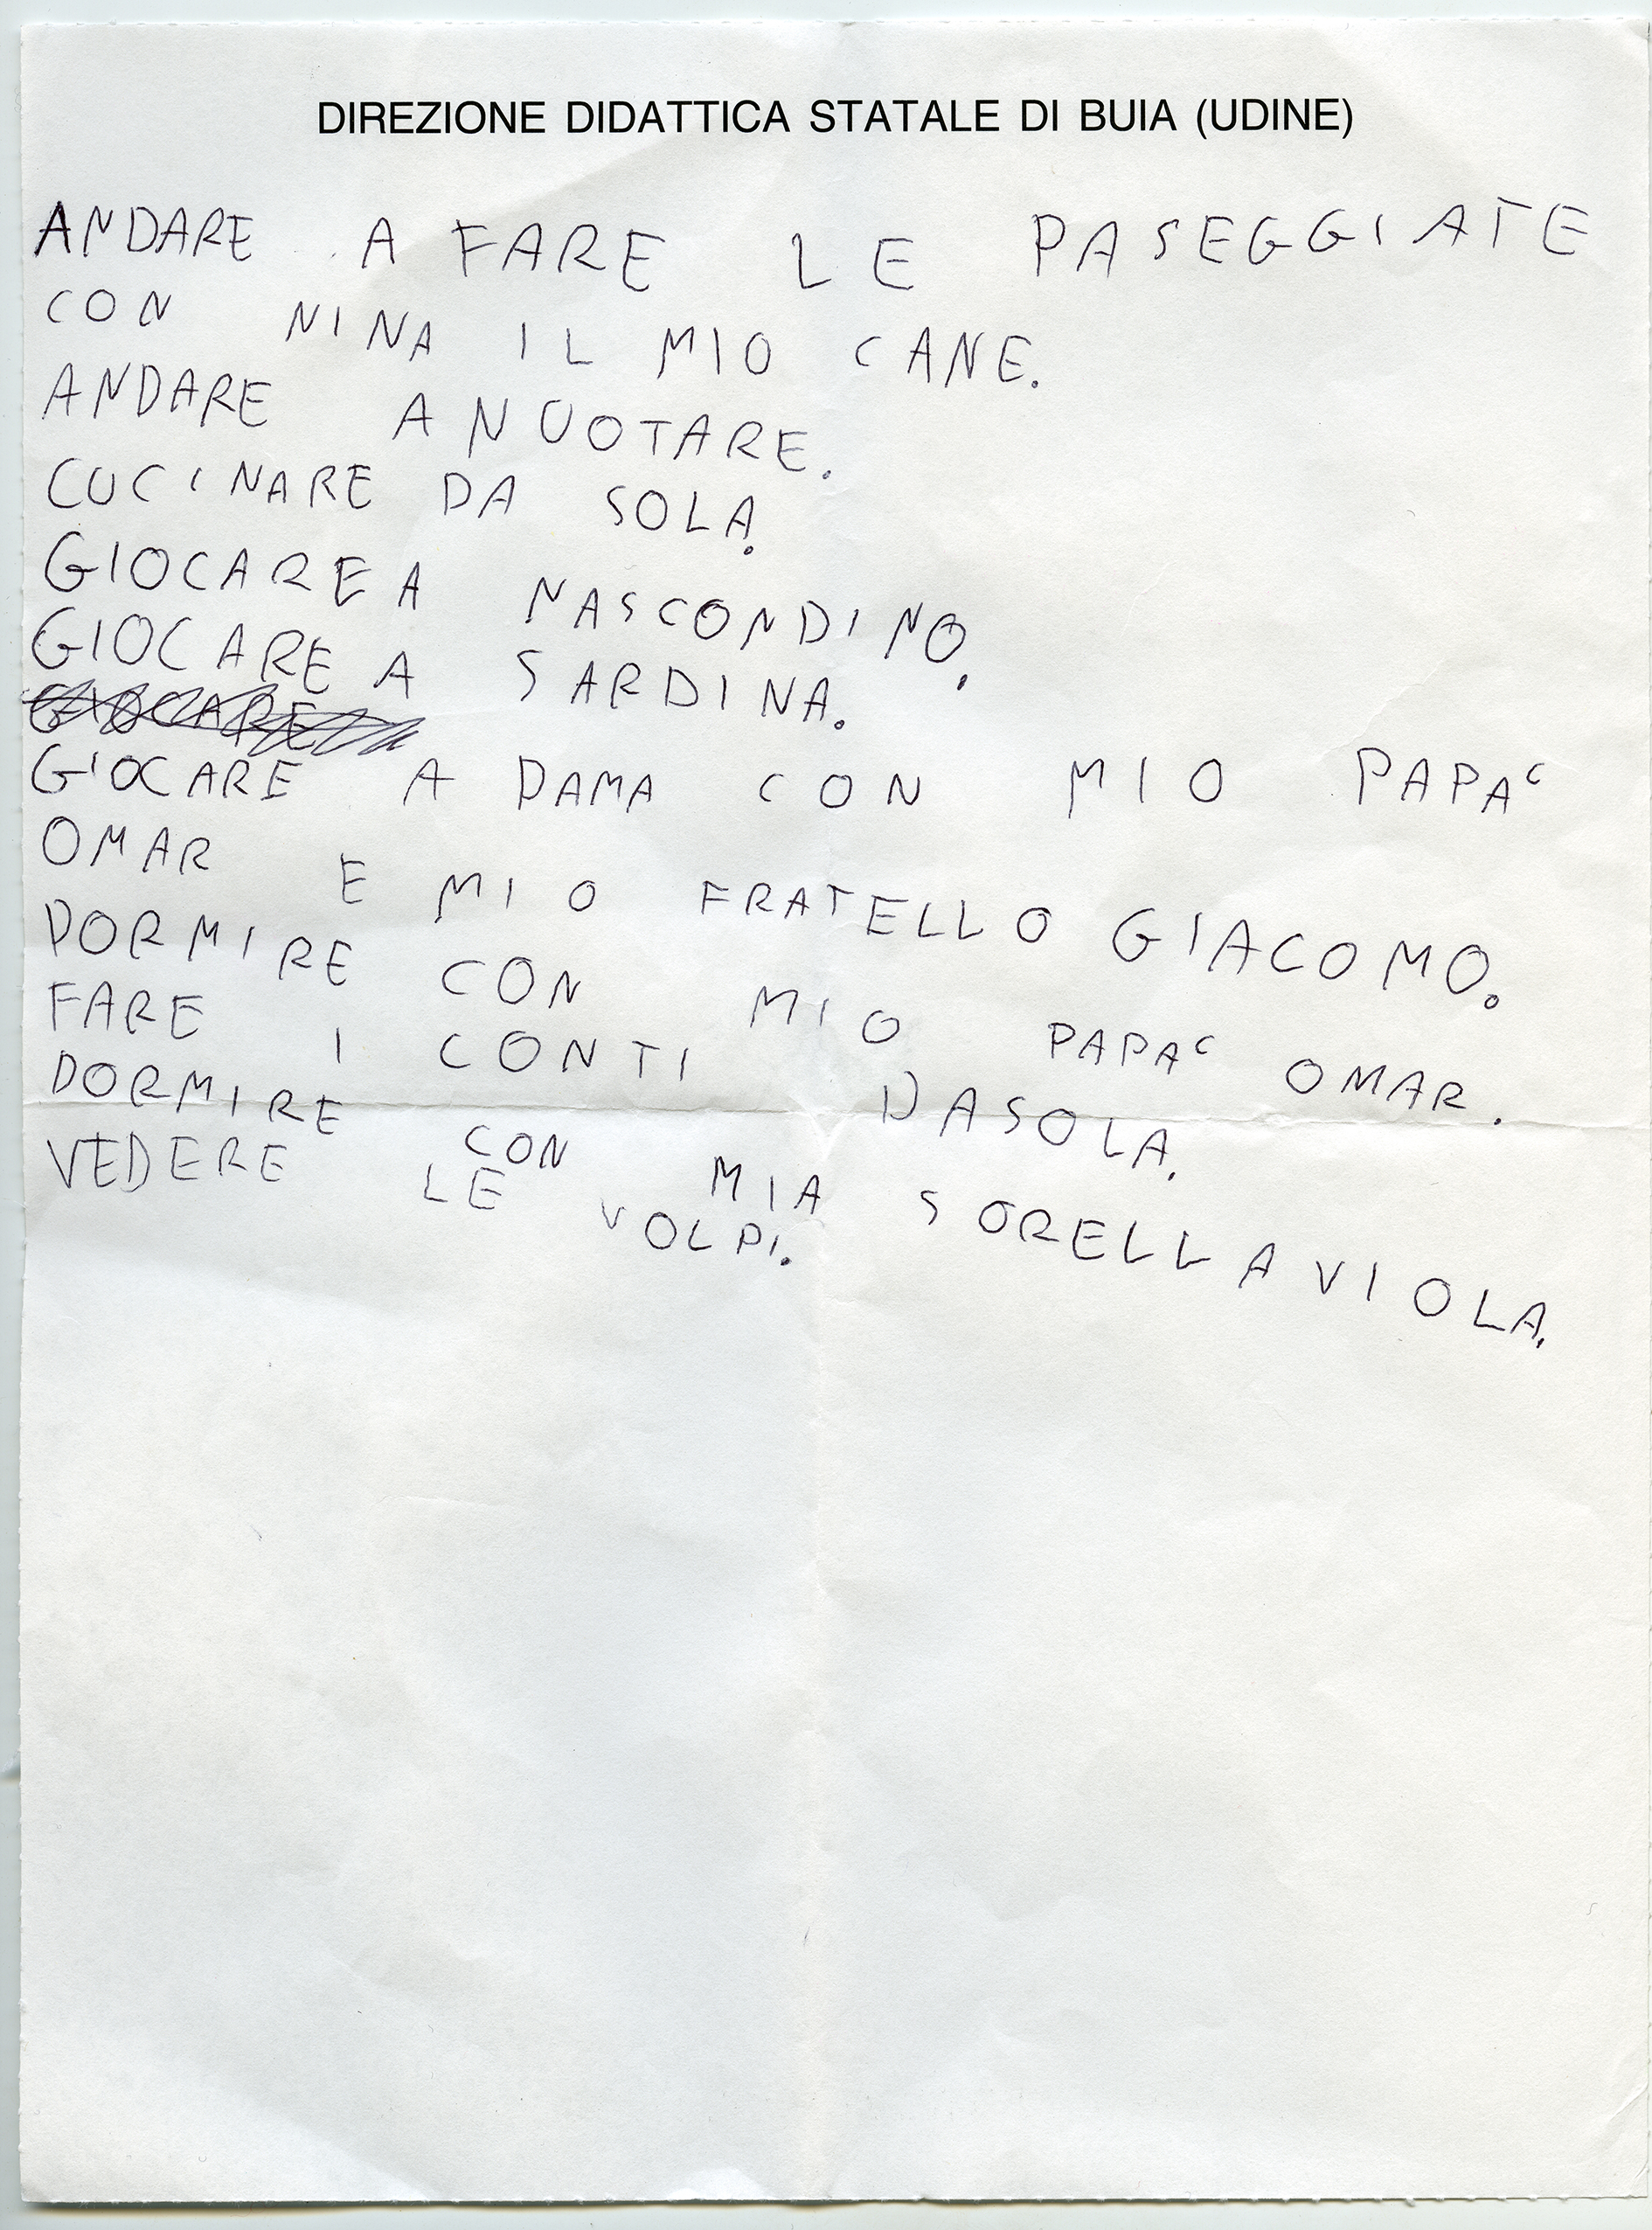 DIREZIONE DIDATTICA STATALE DI BUIA (UDINE)
ANDARE A FARE LE PASEGGIATE
CON NINA IL MIO CANE.
ANDARE A NUOTARE.
CUCINARE DA SOLA.
GIOCARE A NASCONDINO.
GIOCARE A SARDINA.
GIOCARE
GIOCARE A DAMA CON MIO PAPA'
OMAR E MIO FRATELLO GIACOMO.
DORMIRE CON MIO PAPA' OMAR.
FARE I CONTI DA SOLA.
DORMIRE CON MIA SORELLA VIOLA.
VEDERE LE VOLPI.